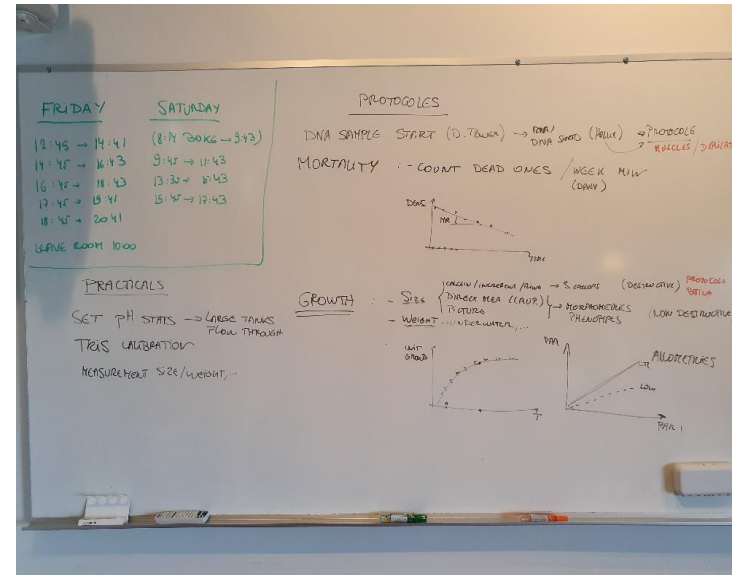 FRIDAY
12:45 → 14:41
14:45 → 16:43
16:45 → 18:43
17:45 → 19:41
18:45 → 20:41
LEAVE ROOM 10:00
SATURDAY
9:45 → 11:43
13:30 →
15:45 → 17:43
PROTOCOLES
DNA SAMPLE START (D. TOWER) → RNA/ DNA → PROTOCOLE
MUSCLES /
MORTALITY : - COUNT DEAD ONES / WEEK MIN
(DAILY)
DENS
MR
TIME
PRACTICALS
SET pH STATS → LARGE TANKS
FLOW THROUGH
TRIS CALIBRATION
MEASUREMENT SIZE/WEIGHT, ...
GROWTH : - SIZE
CALCEIN / INCREMENT / RING → SCALLOPS (DESTRUCTIVE) PROTOCOLE
DIRECT MEA → MORPHOMETRICS (LOW DESTRUCTIVE
PICTURE
PHENOTYPES
- WEIGHT UNDERWATER, ...
GROWTH
T
ALLOMETRIES
LOW